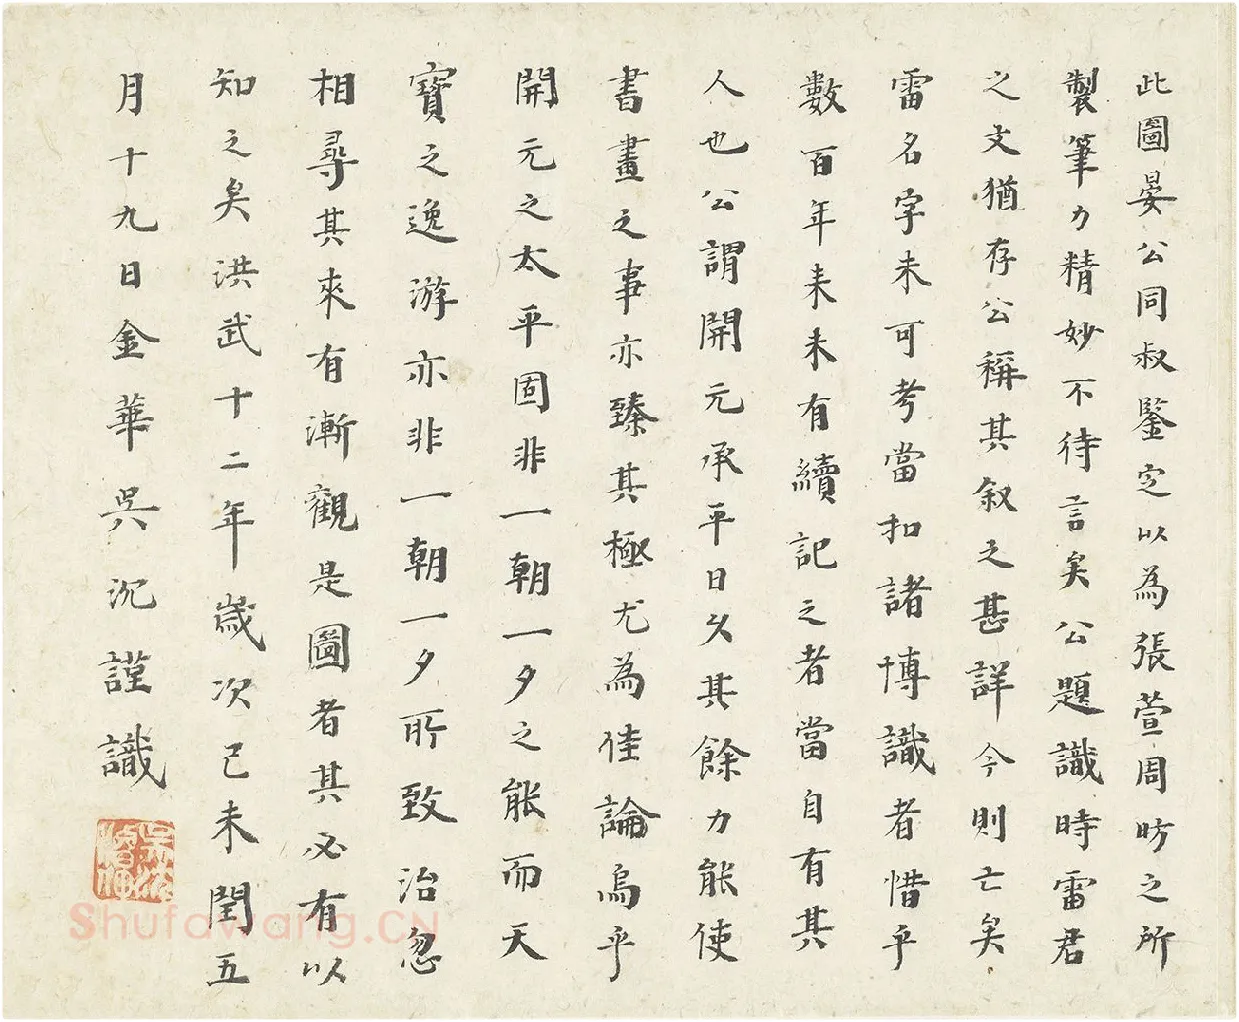 此圖晏公同叔鑒定以為張萱周昉之所
製筆力精妙不待言矣公題識時雷君
之文猶存公稱其叙之甚詳今則亡矣
雷名字未可考當扣諸博識者惜乎
數百年来未有續記之者當自有其
人也公謂開元承平日久其餘力能使
書畫之事亦臻其極尤為佳論烏乎
開元之太平固非一朝一夕之能而天
寶之逸游亦非一朝一夕所致治忽
相尋其來有漸觀是圖者其必有以
知之矣洪武十二年歲次己未閏五
月十九日金華吳沉謹識
Shufawang.CN